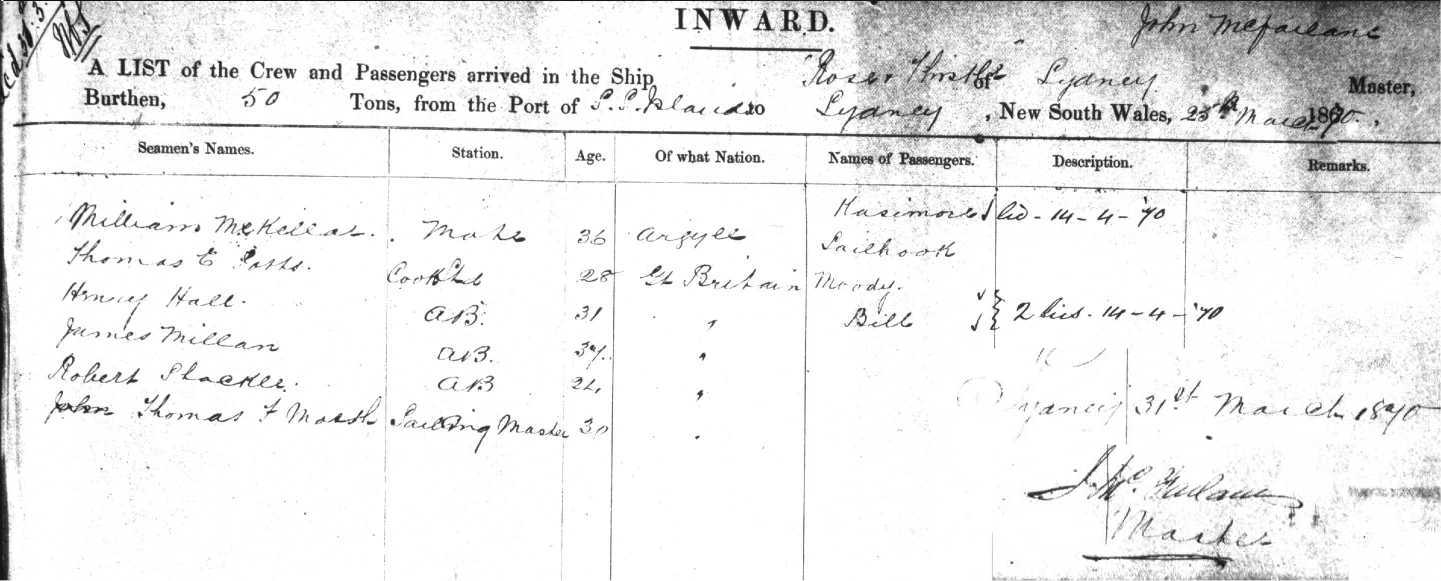 INWARD.
John McFarlane
A LIST of the Crew and Passengers arrived in the Ship Rose & Thistle of Sydney Master,
Burthen, 50 Tons, from the Port of S. S. Islands to Sydney, New South Wales, 23rd March 1870.
Seamen's Names. Station. Age. Of what Nation. Names of Passengers. Description. Remarks.
William McKellar. Mate 36 Argyle Kasimore lid - 14-4-70
Thomas E Potts. Cook 28 Gt Britain Sailhook
Henry Hall. AB. 31 " Moody.
James Millan AB. 37. " Bill 2 lids. 14-4-70
Robert AB 24 "
John Thomas F Marsh Sailing Master 30 "
Sydney 31st March 1870
J. McFarlane
Master